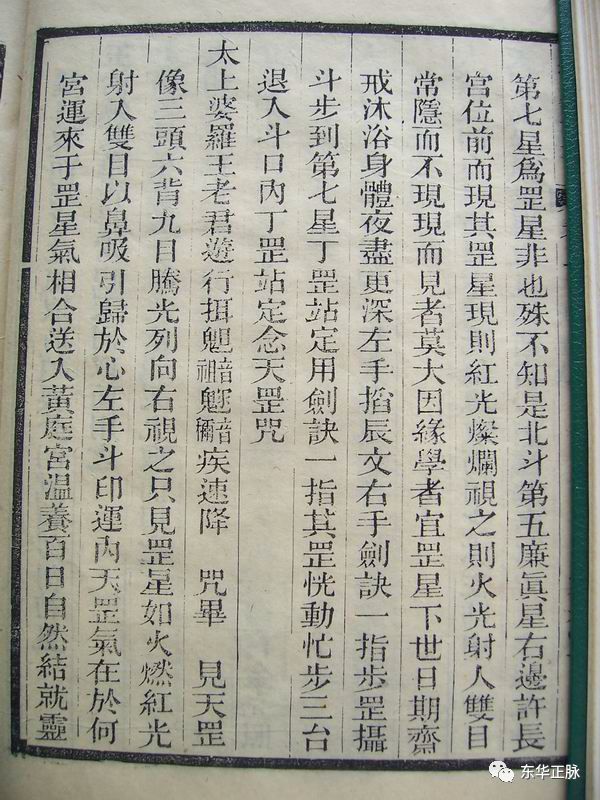 第七星爲罡星非也殊不知是北斗第五廉眞星右邊許長
宮位前而現其罡星現則紅光燦爛視之則火光射人雙目
常隱而不現現而見者莫大因緣學者宜罡星下世日期齋
戒沐浴身體夜盡更深左手搯辰文右手劍訣一指步罡攝
斗步到第七星丁罡站定用劍訣一指其罡恍動忙步三台
退入斗口內丁罡站定念天罡咒
太上婆羅王老君遊行揖魓音祖魓音彌疾速降 咒畢 見天罡
像三頭六背九目騰光列向右視之只見罡星如火燃紅光
射入雙目以鼻吸引歸於心左手斗印運內天罡氣在於何
宮運來于罡星氣相合送入黃庭宮溫養百日自然結就靈
东华正脉